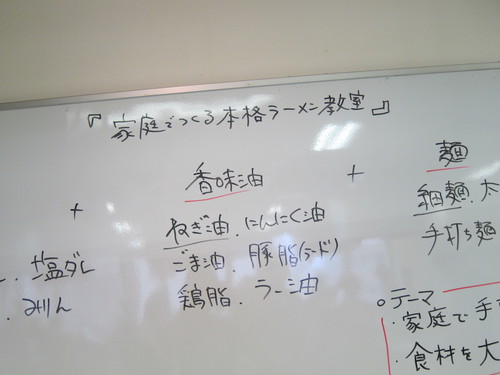 『家庭でつくる本格ラーメン教室』
+ 香味油 + 麺
ねぎ油、にんにく油
ごま油、豚脂(ラード)
鶏脂、ラー油
塩ダレ
みりん
細麺、太
手打ち麺
○テーマ
・家庭で手
・食材を大